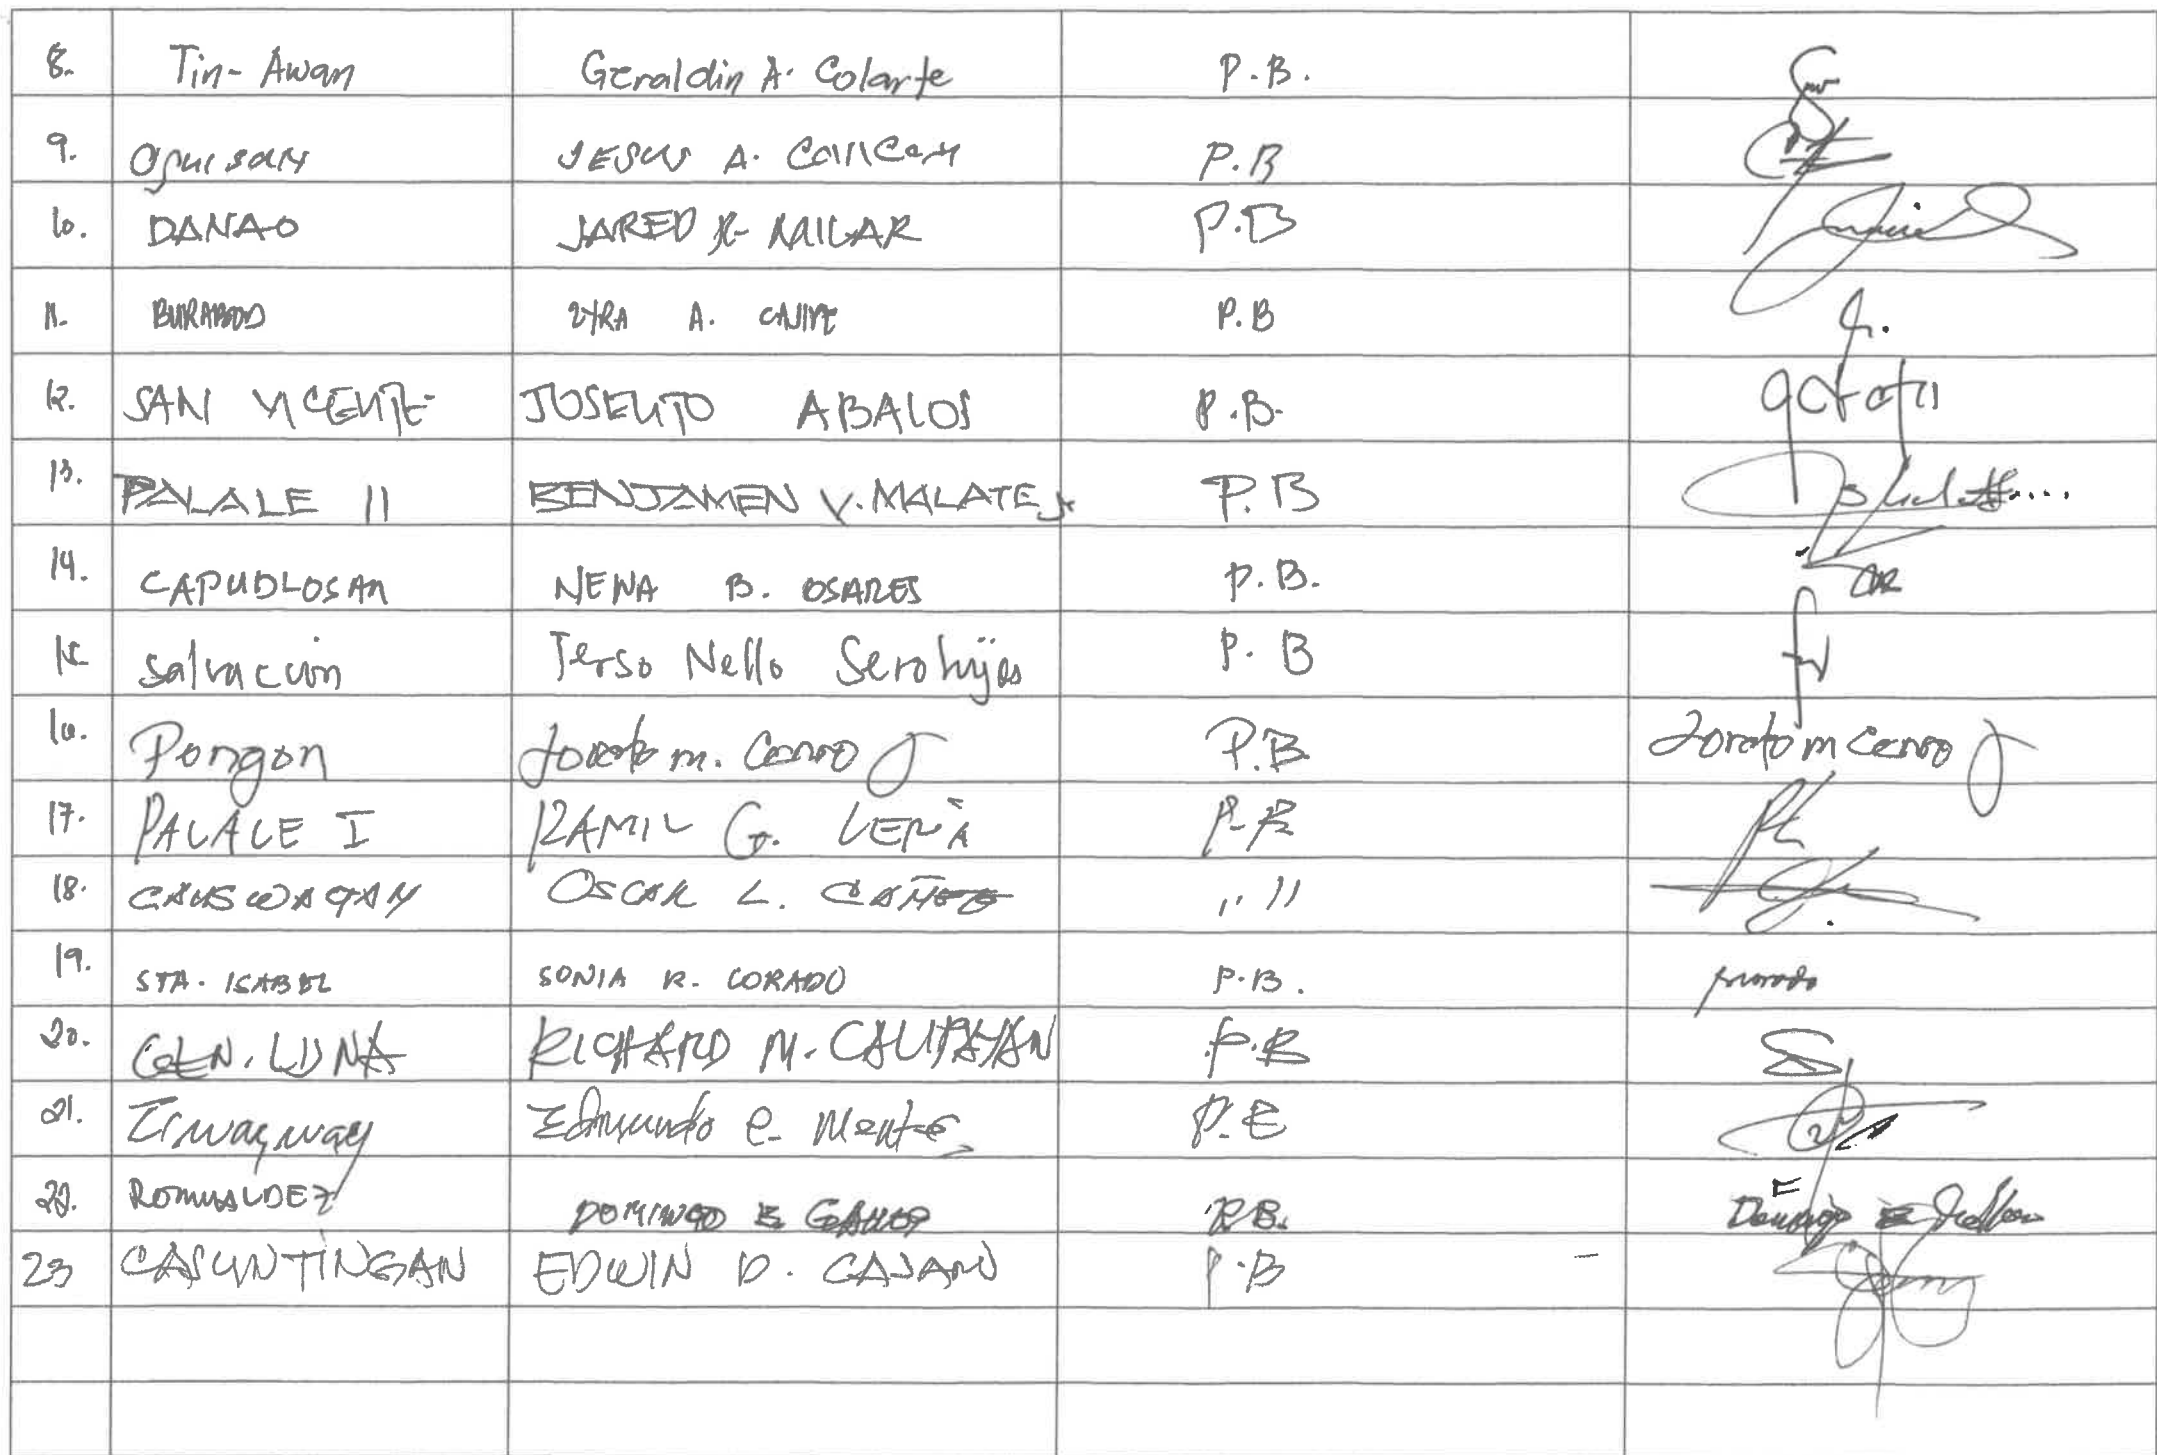 8. Tin-Awan Geraldin A. Colarte P.B.
9. Oguisan JESUS A. P.B
10. DANAO JARED MILAR P.B
11. BURABOD ZYRA A. P.B
12. SAN VICENTE JOSELITO ABALOS P.B.
13. PALALE II BENJAMEN V. MALATE Jr P.B
14. CAPUDLOSAN NENA B. OSARES P.B.
15. Salvacion Terso Nello Serohijos P.B
16. Pongon Loreto m. Cerro Jr P.B Loreto m Cerro Jr
17. PALALE I RAMIL G. P.B
18. CAUSWAGAN OSCAR L. " "
19. STA. ISABEL SONIA R. CORADO P.B.
20. GEN. LUNA RICHARD M. CALIPAYAN P.B
21. Edmundo P.B
22. ROMUALDEZ DOMINGO E P.B.
23 CASUNTINGAN EDWIN D. P.B